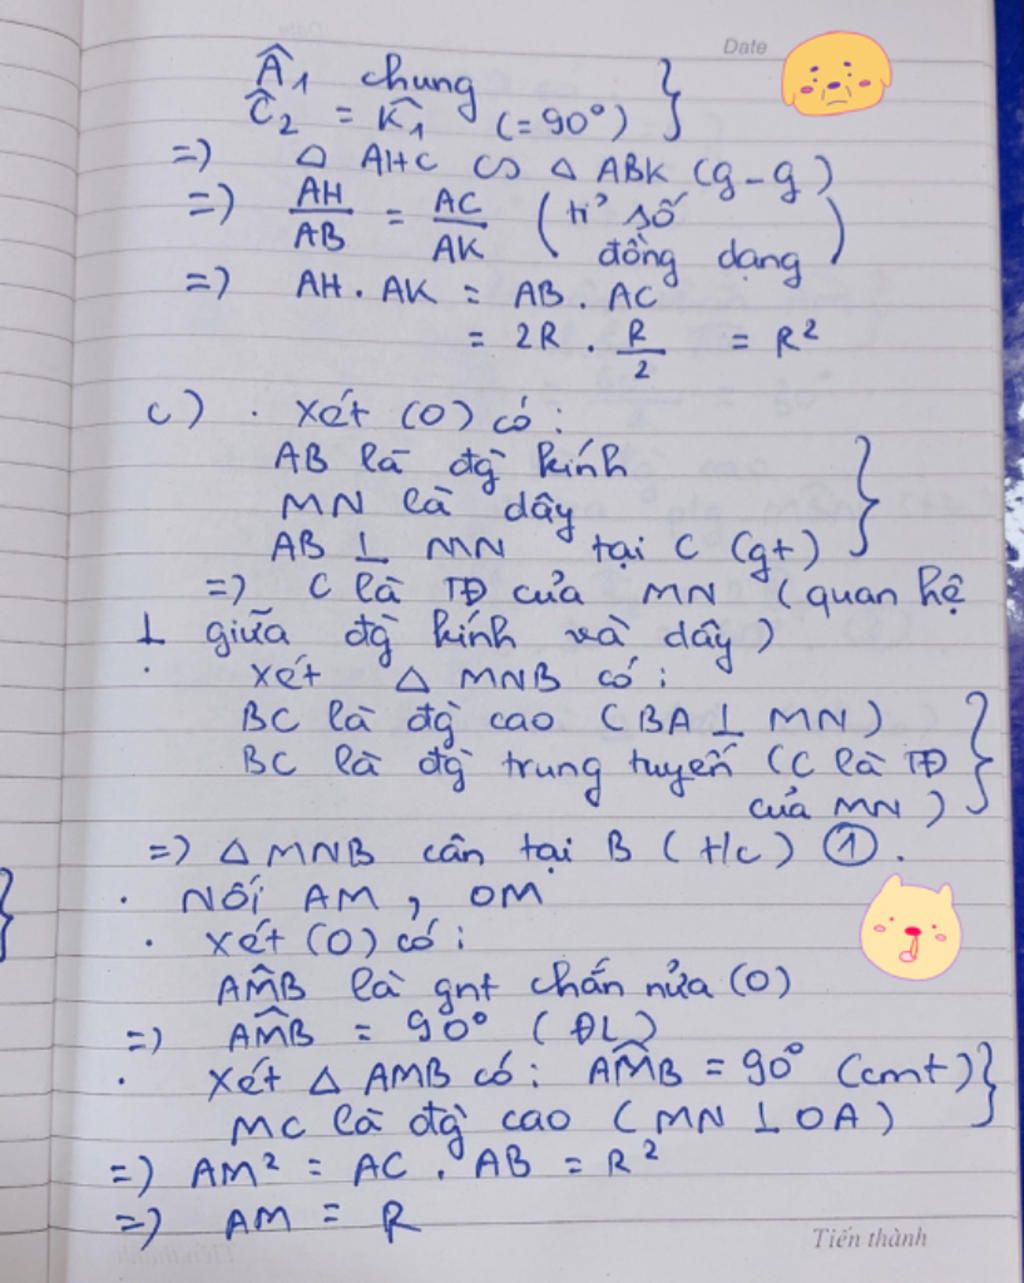 Date
Â1 chung }
Ĉ2 = K̂1 (=90°)
=) △ AHC ∽ △ ABK (g-g)
=) AH/AB = AC/AK (tỉ số đồng dạng)
=) AH . AK = AB . AC
= 2R . R/2 = R²
c) . Xét (O) có:
AB là đg kính
MN là dây
AB ⊥ MN tại C (gt) }
=) C là TĐ của MN (quan hệ
⊥ giữa đg kính và dây)
. Xét △ MNB có:
BC là đg cao (BA ⊥ MN)
BC là đg trung tuyến (C là TĐ
của MN) }
=) △ MNB cân tại B (t/c) ①.
. Nối AM, OM
. Xét (O) có:
AM̂B là gnt chắn nửa (O)
=) AM̂B = 90° (ĐL)
. Xét △ AMB có: AM̂B = 90° (cmt) }
MC là đg cao (MN ⊥ OA)
=) AM² = AC . AB = R²
=) AM = R
Tiến thành